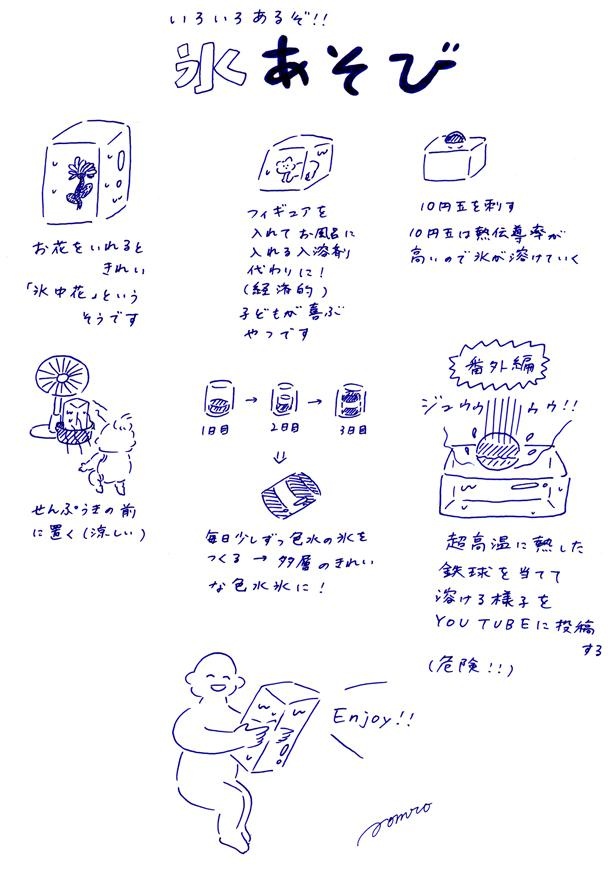 いろいろあるぞ!!
氷あそび
お花をいれると
きれい
「氷中花」という
そうです
フィギュアを
入れてお風呂に
入れる入溶剤
代わりに!
(経済的)
子どもが喜ぶ
やつです
10円玉を刺す
10円玉は熱伝導率が
高いので氷が溶けていく
せんぷうきの前
に置く(涼しい)
1日目 → 2日目 → 3日目
⇓
毎日少しずつ色水の氷を
つくる → 多層のきれい
な色水氷に!
番外編
ジュゥゥゥ ゥゥ!!
超高温に熱した
鉄球を当てて
溶ける様子を
YOUTUBEに投稿
する
(危険!!)
Enjoy!!